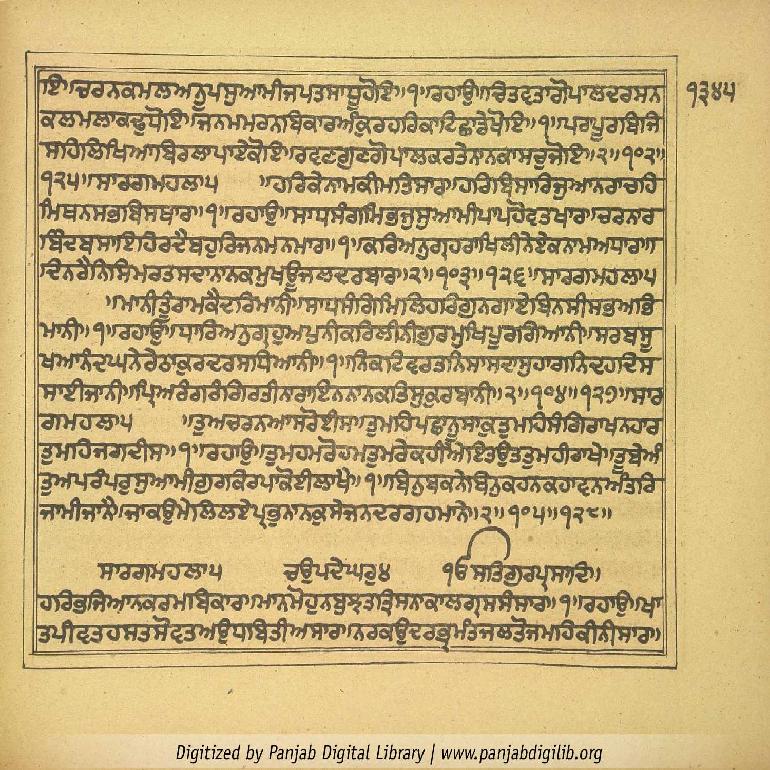 ਇ॥ਚਰਨਕਮਲਅਨੂਪਸੁਆਮੀਜਪਤਸਾਧੂਹੋਇ॥੧॥ਰਹਾਉ॥ਚਿਤਵਤਾਗੋਪਾਲਦਰਸਨ ੧੩੪੫
ਕਲਮਲਾਕਢੁਧੋਇ॥ਜਨਮਮਰਨਬਿਕਾਰਅੰਕੁਰਹਰਿਕਾਟਿਛਾਡੇਖੋਇ॥੧॥ਪਰਾਪੂਰਬਿਜਿ
ਸਹਿਲਿਖਿਆਬਿਰਲਾਪਾਏਕੋਇ॥ਰਵਣਗੁਣਗੋਪਾਲਕਰਤੇਨਾਨਕਾਸਚੁਜੋਇ॥੨॥੧੦੨॥
੧੨੫॥ਸਾਰਗਮਹਲਾ੫ ॥ਹਰਿਕੇਨਾਮਕੀਮਤਿਸਾਰ॥ਹਰਿਬਿਸਾਰਿਜੁਆਨਰਾਚਹਿ
ਮਿਥਨਸਭਬਿਸਥਾਰ॥੧॥ਰਹਾਉ॥ਸਾਧਸੰਗਮਿਭਜੁਸੁਆਮੀਪਾਪਹੋਵਤਖਾਰ॥ਚਰਨਾਰ
ਬਿੰਦਬਸਾਇਹਿਰਦੈਬਹੁਰਿਜਨਮਨਮਾਰ॥੧॥ਕਰਿਅਨੁਗ੍ਰਹਰਾਖਿਲੀਨੇਏਕਨਾਮਅਧਾਰ॥
ਦਿਨਰੈਨਿਸਿਮਰਤਸਦਾਨਾਨਕਮੁਖਊਜਲਦਰਬਾਰ॥੨॥੧੦੩॥੧੨੬॥ਸਾਰਗਮਹਲਾ੫
॥ਮਾਨੀਤੂੰਰਾਮਕੈਦਰਿਮਾਨੀ॥ਸਾਧਸੰਗਿਮਿਲਿਹਰਿਗੁਨਗਾਏਬਿਨਸੀਸਭਅਭਿ
ਮਾਨੀ॥੧॥ਰਹਾਉ॥ਧਾਰਿਅਨੁਗ੍ਰਹੁਅਪੁਨੀਕਰਿਲੀਨੀਗੁਰਮੁਖਿਪੂਰਗਿਆਨੀ॥ਸਰਬਸੂ
ਖਆਨੰਦਘਨੇਰੇਠਾਕੁਰਦਰਸਧਿਆਨੀ॥੧॥ਨਿਕਟਿਵਰਤਨਿਸਾਸਦਾਸੁਹਾਗਨਿਦਹਦਿਸ
ਸਾਈਜਾਨੀ॥ਪ੍ਰਿਅਰੰਗਰੰਗਿਰਤੀਨਰਾਇਨਨਾਨਕਤਿਸੁਕੁਰਬਾਨੀ॥੨॥੧੦੪॥੧੨੭॥ਸਾਰ
ਗਮਹਲਾ੫ ॥ਤੁਅਚਰਨਆਸਰੋਈਸ॥ਤੁਮਹਿਪਛਾਨੂਸਾਕੁਤੁਮਹਿਸੰਗਿਰਾਖਨਹਾਰ
ਤੁਮਹਿਜਗਦੀਸ॥੧॥ਰਹਾਉ॥ਤੁਮਹਮਰੋਹਮਤੁਮਰੇਕਹੀਐਇਤਉਤਤੁਮਹੀਰਾਖੇ॥ਤੂਬੇਅੰ
ਤੁਅਪਰੰਪਰੁਸੁਆਮੀਗੁਰਕਿਰਪਾਕੋਈਲਾਖੈ॥੧॥ਬਿਨੁਬਕਨੇਬਿਨੁਕਹਨਕਹਾਵਨਅੰਤਰਿ
ਜਾਮੀਜਾਨੈ॥ਜਾਕਉਮੇਲਿਲਏਪ੍ਰਭੁਨਾਨਕੁਸੇਜਨਦਰਗਹਮਾਨੇ॥੨॥੧੦੫॥੧੨੮॥
ਸਾਰਗਮਹਲਾ੫ ਚਉਪਦੇਘਰੁ੪ ੴਸਤਿਗੁਰਪ੍ਰਸਾਦਿ॥
ਹਰਿਭਜਿਆਨਕਰਮਬਿਕਾਰ॥ਮਾਨਮੋਹੁਨਬੁਝਤਤ੍ਰਿਸਨਾਕਾਲਗ੍ਰਸਸੰਸਾਰ॥੧॥ਰਹਾਉ॥ਖਾ
ਤਪੀਵਤਹਸਤਸੋਵਤਅਉਧਬਿਤੀਅਸਾਰ॥ਨਰਕਉਦਰਭ੍ਰਮੰਤਜਲਤੋਜਮਹਿਕੀਨੀਸਾਰ॥
Digitized by Panjab Digital Library | www.panjabdigilib.org